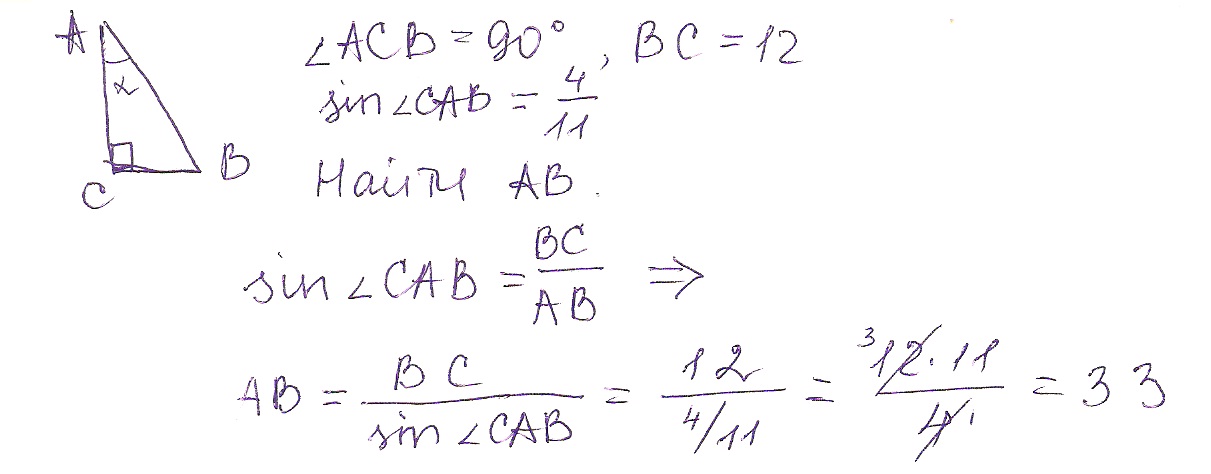 A
α
C
B
∠ACB = 90°, BC = 12
sin∠CAB = 4/11
Найти AB.
sin∠CAB = BC/AB ⇒
AB = BC/sin∠CAB = 12/(4/11) = ³12·11/4₁ = 33